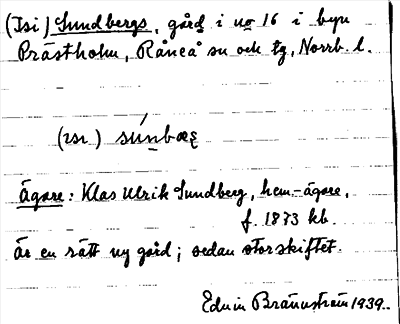 (Isi) Sundbergs, gård i no 16 i byn
Prästholm, Råneå sn och tg, Norrb. l.
(ɪsɪ)
Ägare: Klas Ulrik Sundberg, hem-ägare,
f. 1873 kb.
Är en rätt ny gård; sedan storskiftet.
Edvin Brännström 1939.